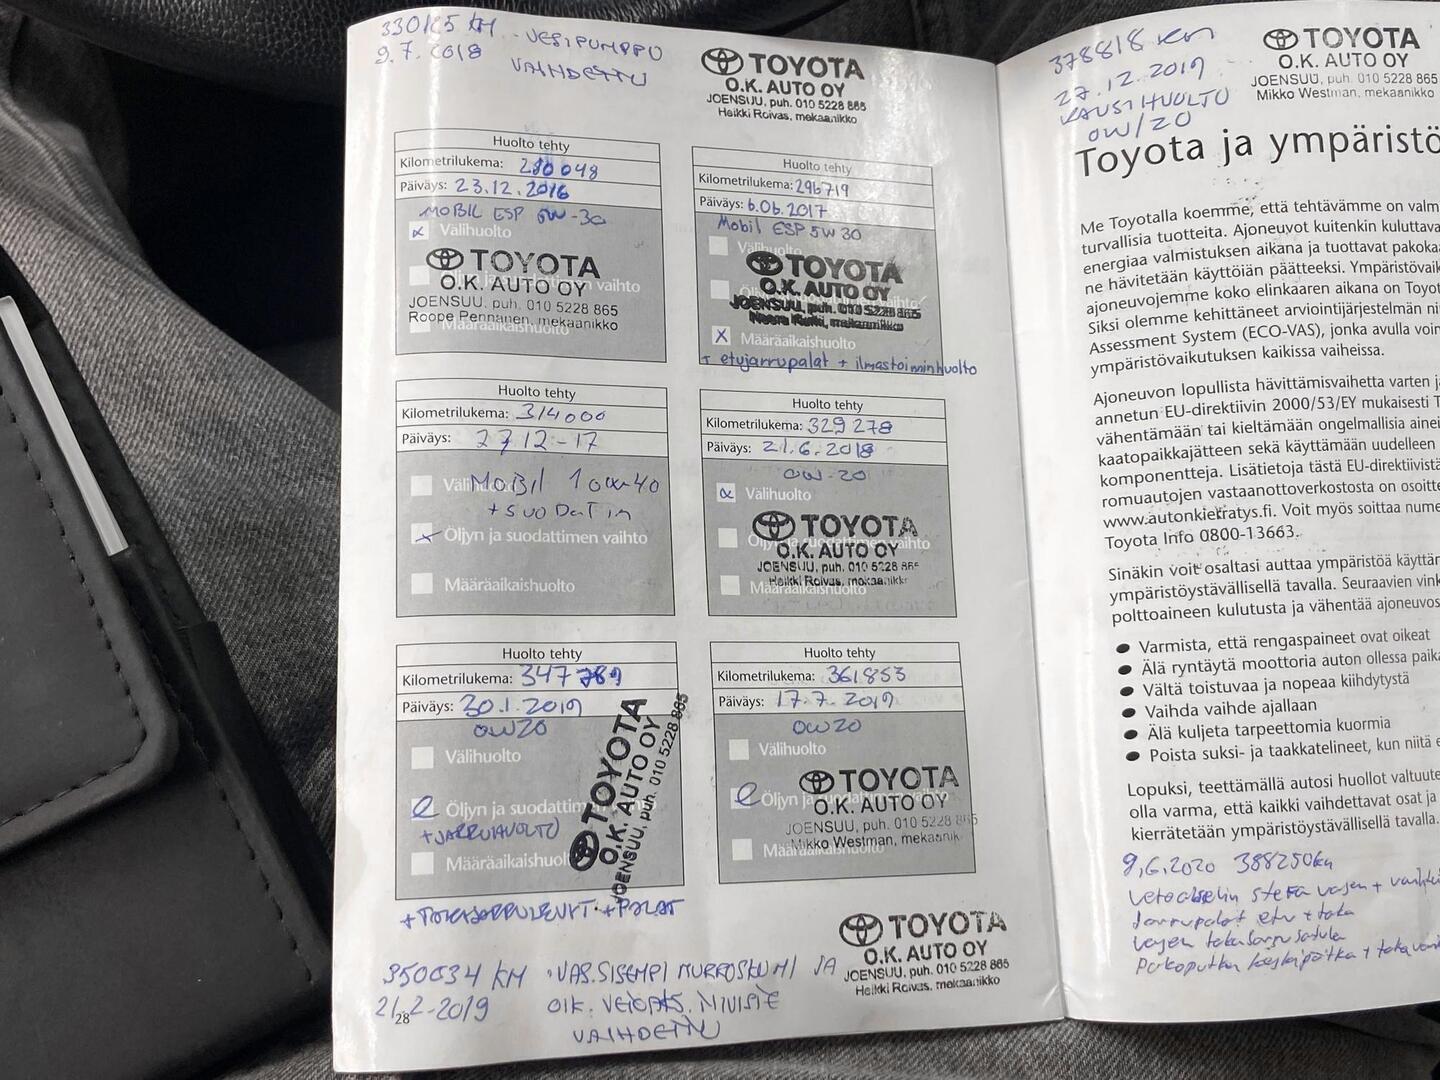 330125 KM - VESIPUMPPU
9.7.2018 VAIHDETTU
TOYOTA
O.K. AUTO OY
JOENSUU, puh. 010 5228 865
Heikki Roivas, mekaanikko
Huolto tehty
Kilometrilukema: 280048
Päiväys: 23.12.2016
MOBIL ESP 0W-30
Välihuolto
TOYOTA
Öljyn ja suodattimen vaihto
O.K. AUTO OY
JOENSUU, puh. 010 5228 865
Roope Pennanen, mekaanikko
Määräaikaishuolto
Huolto tehty
Kilometrilukema: 296719
Päiväys: 6.06.2017
Mobil ESP 5W30
Välihuolto
TOYOTA
O.K. AUTO OY
JOENSUU, puh. 010 5228 865
mekaanikko
X Määräaikaishuolto
+ etujarrupalat + ilmastoiminhuolto
Huolto tehty
Kilometrilukema: 314000
Päiväys: 27 12-17
Välihuolto
MOBIL 10W-40
+ SUODATIN
Öljyn ja suodattimen vaihto
Määräaikaishuolto
Huolto tehty
Kilometrilukema: 329278
Päiväys: 21.6.2018
0W-20
Välihuolto
TOYOTA
Öljyn ja suodattimen vaihto
O.K. AUTO OY
JOENSUU, puh. 010 5228 865
Heikki Roivas, mekaanikko
Määräaikaishuolto
Huolto tehty
Kilometrilukema: 347789
Päiväys: 30.1.2019
0W20
Välihuolto
Öljyn ja suodattim
+JARRUHUOLTO
Määräaikaishuol
TOYOTA
O.K. AUTO OY
JOENSUU, puh. 010 5228 865
+PALAT
Huolto tehty
Kilometrilukema: 361853
Päiväys: 17.7.2019
0W20
Välihuolto
TOYOTA
Öljyn ja suodattimen vaihto
O.K. AUTO OY
JOENSUU, puh. 010 5228 865
Mikko Westman, mekaanik
Määräaikaishuolto
350034 KM VAS.SISEMPI MURROSKUMI JA
21.2-2019 OIK. VETOAKS. NIVELLE
VAIHDETTU
TOYOTA
O.K. AUTO OY
JOENSUU, puh. 010 5228 865
Heikki Roivas, mekaanikko
28
378818 km
27.12.2019
KAUSIHUOLTO
0W/20
TOYOTA
O.K. AUTO OY
JOENSUU, puh. 010 5228 865
Mikko Westman, mekaanikko
Toyota ja ympäristö
Me Toyotalla koemme, että tehtävämme on valm
turvallisia tuotteita. Ajoneuvot kuitenkin kuluttava
energiaa valmistuksen aikana ja tuottavat pakoka
ne hävitetään käyttöiän päätteeksi. Ympäristövaik
ajoneuvojemme koko elinkaaren aikana on Toyot
Siksi olemme kehittäneet arviointijärjestelmän ni
Assessment System (ECO-VAS), jonka avulla voin
ympäristövaikutuksen kaikissa vaiheissa.
Ajoneuvon lopullista hävittämisvaihetta varten ja
annetun EU-direktiivin 2000/53/EY mukaisesti T
vähentämään tai kieltämään ongelmallisia ainei
kaatopaikkajätteen sekä käyttämään uudelleen
komponentteja. Lisätietoja tästä EU-direktiivistä
romuautojen vastaanottoverkostosta on osoitte
www.autonkierratys.fi. Voit myös soittaa nume
Toyota Info 0800-13663.
Sinäkin voit osaltasi auttaa ympäristöä käyttär
ympäristöystävällisellä tavalla. Seuraavien vink
polttoaineen kulutusta ja vähentää ajoneuvos
• Varmista, että rengaspaineet ovat oikeat
• Älä ryntäytä moottoria auton ollessa paika
• Vältä toistuvaa ja nopeaa kiihdytystä
• Vaihda vaihde ajallaan
• Älä kuljeta tarpeettomia kuormia
• Poista suksi- ja taakkatelineet, kun niitä e
Lopuksi, teettämällä autosi huollot valtuute
olla varma, että kaikki vaihdettavat osat ja
kierrätetään ympäristöystävällisellä tavalla.
9.6.2020 388250km
Vetoakselin stefa vasen +
Jarrupalat etu + taka
Vasen takajarrusatula
Pakoputken keskipötkä + taka